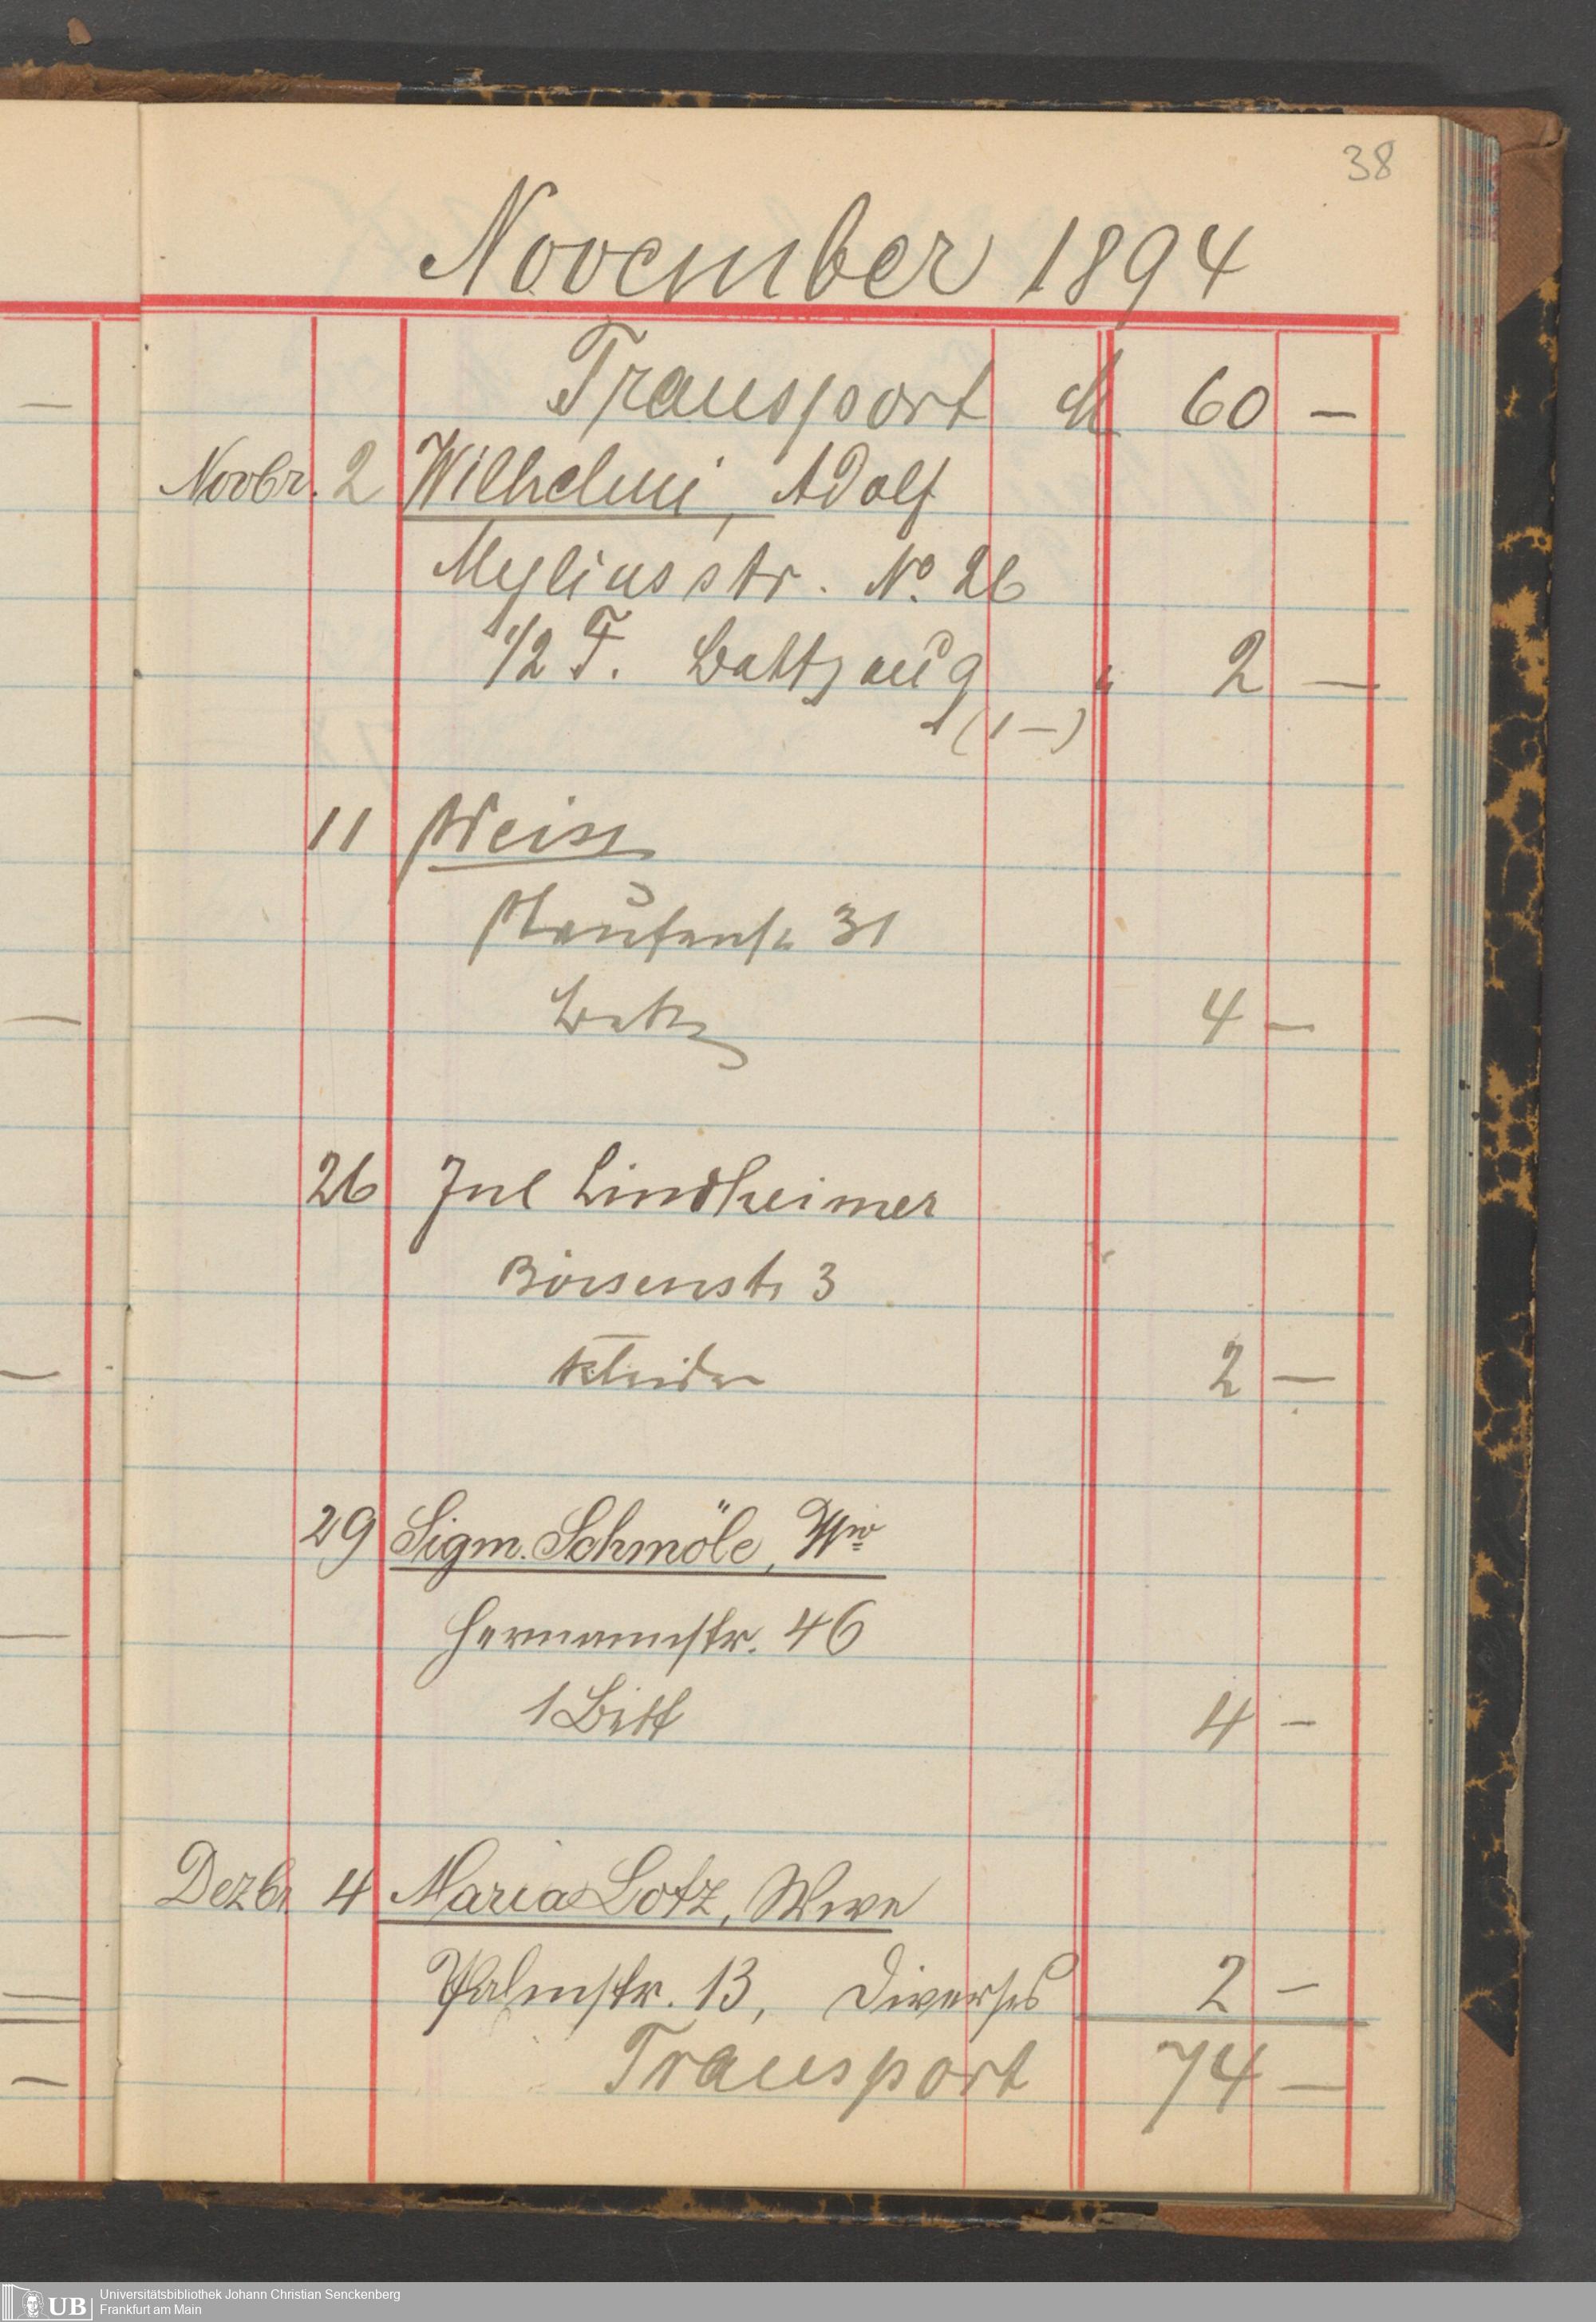 38
November 1894
Transport M 60 —
Novbr. 2 Wilhelmi, Adolf
Myliusstr. No. 26
1/2 T. Bettzeug " 2 —
(1 —)
11 Weiss
31
Bettz 4 —
26 Jul Lindheimer
Börsenstr 3
Kleider 2 —
29 Sigm. Schmöle, Ww
Hermannstr. 46
1 Bett 4 —
Dezbr 4 Maria Lotz, Wwe
Palmstr. 13, Diverses 2 —
Transport 74 —
UB Universitätsbibliothek Johann Christian Senckenberg
Frankfurt am Main